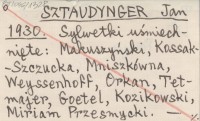 SZTAUDYNGER Jan
1930. Sylwetki uśmiech-
nięte: Makuszyński, Kossak-
-Szczucka, Mniszkówna,
Weyssenhoff, Orkan, Tet-
majer, Goetel, Kozikowski,
Miriam Przesmycki. —